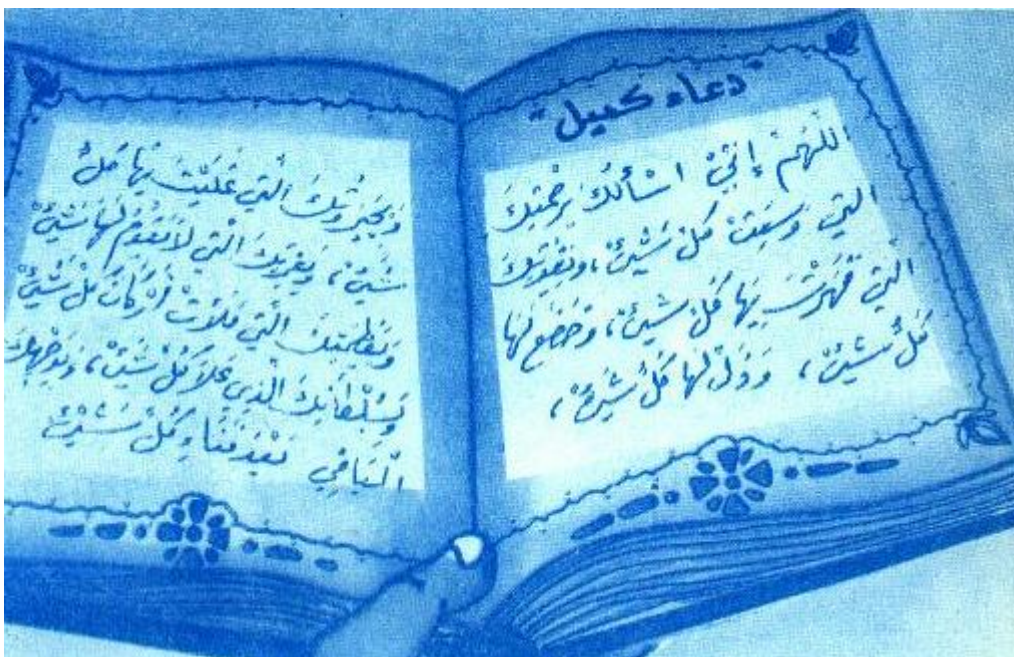 "دعاء كميل"
اللهُمَّ إِنِّيْ اسْأَلُكَ بِرَحْمَتِكَ
الَّتِيْ وَسِعَتْ كُلَّ شَيْئٍ، وَبِقُوَّتِكَ
الَّتِيْ قَهَرْتَ بِهَا كُلَّ شَيْئٍ، وَخَضَعَ لَهَا
كُلُّ شَيْئٍ، وَذَلَّ لَهَا كُلُّ شَيْئٍ،
وَبِجَبَرُوْتِكَ الَّتِيْ غَلَبْتَ بِهَا كُلَّ
شَيْئٍ، وَبِعِزَّتِكَ الَّتِيْ لاَ يَقُوْمُ لَهَا شَيْئٌ
وَبِعَظَمَتِكَ الَّتِيْ مَلَأَتْ أَرْكَانَ كُلِّ شَيْئٍ
وَبِسُلْطَانِكَ الَّذِيْ عَلاَ كُلَّ شَيْئٍ، وَبِوَجْهِكَ
الْبَاقِي بَعْدَ فَنَاءِ كُلِّ شَيْئٍ